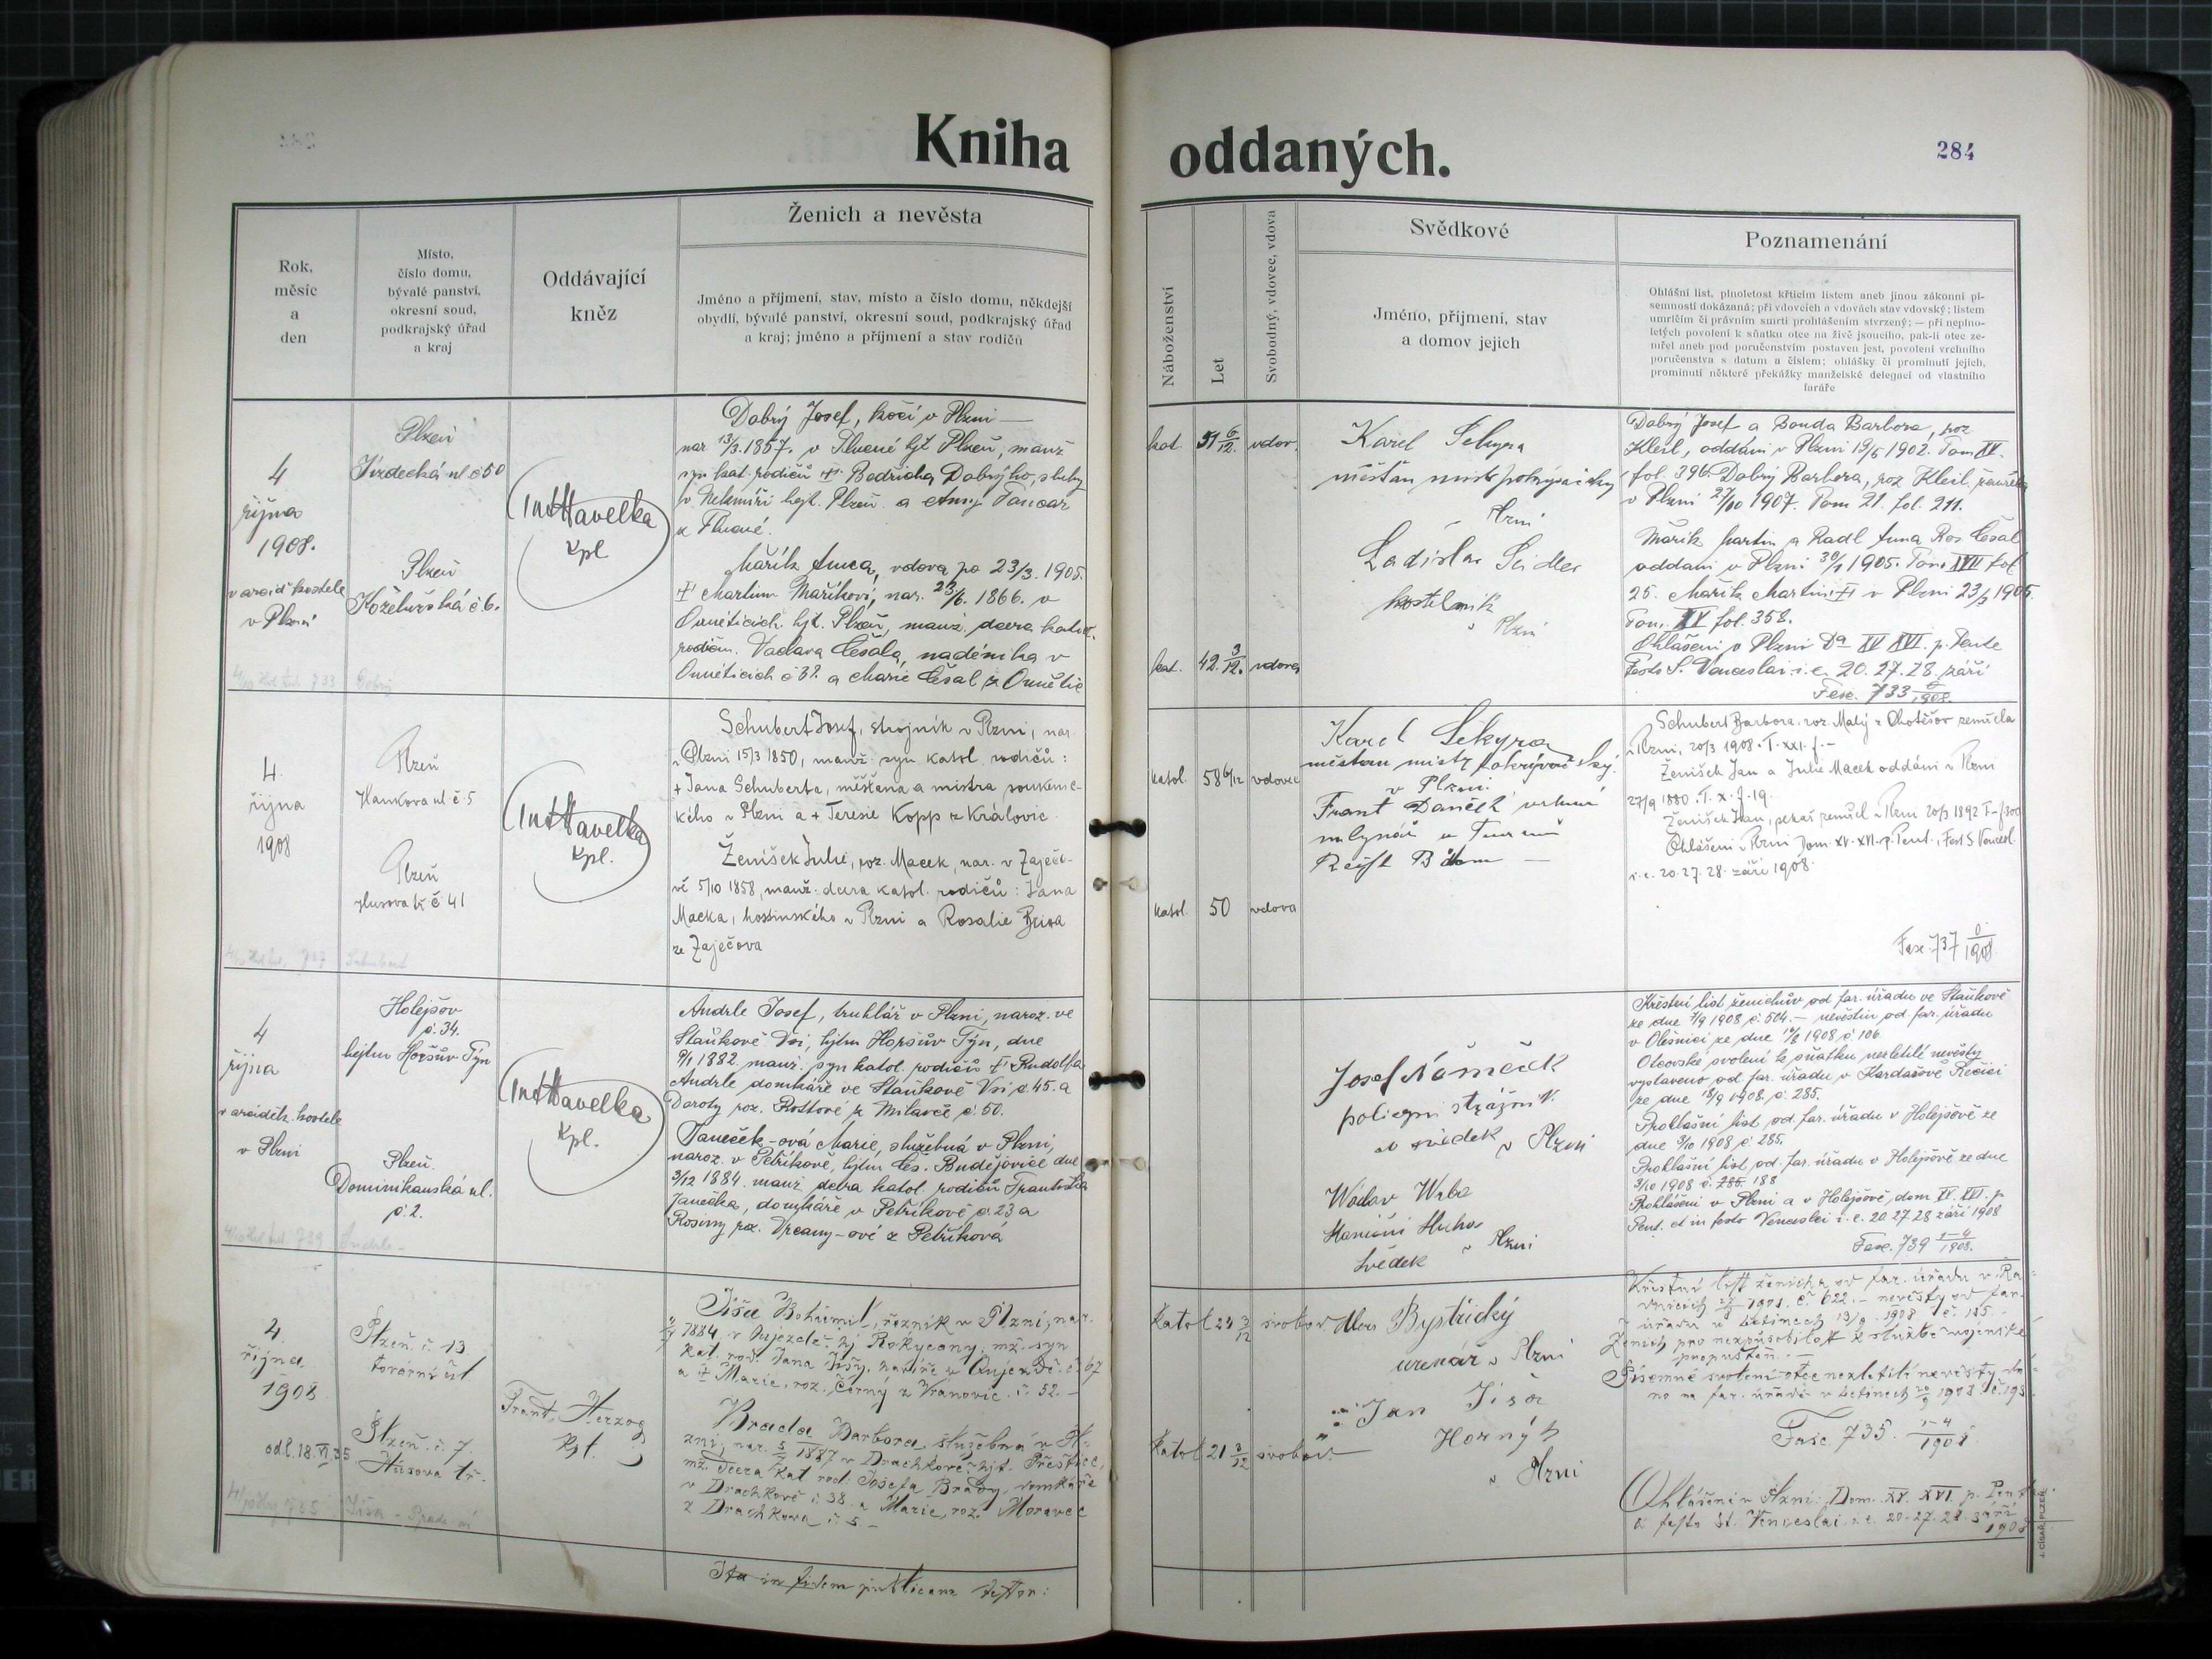 Kniha oddaných.
284
Rok,
měsíc
a
den
Místo,
číslo domu,
bývalé panství,
okresní soud,
podkrajský úřad
a kraj
Oddávající
kněz
Ženich a nevěsta
Jméno a příjmení, stav, místo a číslo domu, někdejší
obydlí, bývalé panství, okresní soud, podkrajský úřad
a kraj; jméno a příjmení a stav rodičů
Náboženství
Let
Svobodný, vdovec, vdova
Svědkové
Jméno, příjmení, stav
a domov jejich
Poznamenání
Ohlášní list, plnoletost křticím listem aneb jinou zákonní pí-
semností dokázaná; při vdovcích a vdovách stav vdovský; listem
umrlčím či právním smrti prohlášením stvrzený; — při neplno-
letých povolení k sňatku otce na živě jsoucího, pak-li otec ze-
mřel aneb pod poručenstvím postaven jest, povolení vrchního
poručenstva s datum a číslem; ohlášky či prominutí jejich,
prominutí některé překážky manželské delegací od vlastního
faráře
4
října
1908.
v arcid. kostele
v Plzni
Plzeň
Jízdecká ul č 50
Plzeň
Koželužská č 6.
Havelka
kpl
Dobrý Josef, kočí v Plzni —
nar 13/3.1857. v hjt Plzeň, manž
syn kat. rodičů + Bedřicha Dobrýho, sluhy
v Nekmíři hejt. Plzeň a Anny
Mařík Anna, vdova po 23/3. 1905.
+ Martinu Maříkovi, nar. 23/6. 1866. v
hjt. Plzeň, manž. dcera katol.
rodičům. Václava Česala, nádeníka v
č 32 a Marie Česal z
kat. 51 6/12. vdov.
kat. 42. 3/12. vdova
Karel Sekyra
měšťan mistr pokrývačský
Plzni
Ladislav Seidler
kostelník
v Plzni
Dobrý Josef a Bouda Barbora, roz
oddáni v Plzni 19/5 1902. Tom XV.
fol. 396. Dobrý Barbora, roz zemřela
v Plzni 27/10 1907. Tom 21. fol. 211.
Mařík Martin a Radl Anna Roz Česal
oddáni v Plzni 30/1 1905. Tom XVII fol
25. Mařík Martin + v Plzni 23/3 1905.
Tom. XX fol. 358.
Ohlášeni v Plzni Da XV XVI. p. Pente
Festo S. Venceslai i. e. 20. 27. 28. září
Fasc. 733 6/1908.
4.
října
1908
Plzeň
Hankova ul č. 5
Plzeň
Husova tř č 41
Havelka
kpl.
Schubert Josef, strojník v Plzni, nar.
v Plzni 15/3 1850, manž. syn katol. rodičů:
+ Jana Schuberta, měšťana a mistra soukenic-
kého v Plzni a + Terezie Kopp z Královic.
Ženíšek Julie, roz. Macek, nar. v Zaječo-
vě 5/10 1858, manž. dcera katol. rodičů: Jana
Macka, hostinského v Plzni a Rosalie
ze Zaječova
katol. 58 6/12 vdovec
katol. 50 vdova
Karel Sekyra
měšťan mistr pokrývačský
v Plzni.
Frant Daněk vrchní
mlynář
Schubert Barbora, roz. Malý z Chotěšov zemřela
v Plzni, 20/3 1908. T. XXI. f. —
Ženíšek Jan a Julie Macek oddáni v Plzni
27/9 1880. T. X. f. 19.
Ženíšek Jan, pekař zemřel v Plzni 20/3 1892
Ohlášeni v Plzni Dom. XV. XVI. p. Pent., Fest S Vencesl.
i. e. 20. 27. 28. září 1908.
Fasc. 737 0/1908.
4
října
v arciděk. kostele
v Plzni
Holejšov
č. 34.
hejtm Horšův Týn
Plzeň.
Dominikánská ul.
č. 2.
Havelka
kpl.
Andrle Josef, truhlář v Plzni, naroz. ve
Staňkově Vsi, hjtm Horšův Týn, dne
9/1 1882. manž. syn katol. rodičů + Rudolfa
Andrle domkáře ve Staňkově Vsi č. 45. a
Doroty roz. z Milavče č. 50.
Janeček-ová Marie, služebná v Plzni,
naroz. v Petříkově, hjtm Čes. Budějovice dne
3/12 1884. manž dcera katol. rodičů Františka
Janečka, domkáře v Petříkově č. 23 a
Rosiny roz. z Petříkova
Josef Němeček
policejní strážník
a svědek v Plzni
Václav
svědek v Plzni
Křestní list ženichův od far. úřadu ve Staňkově
ze dne 7/9 1908 č. 504. — nevěstin od far. úřadu
v Olešnici ze dne 1908 č. 106.
Otcovské svolení k sňatku nezletilé nevěsty
vystaveno od far. úřadu v Kardašově Řečici
ze dne 18/9 1908. č. 285.
Prohlášní list od far. úřadu v Holejšově ze
dne 3/10 1908 č. 285.
Prohlášní list od far. úřadu v Holejšově ze dne
3/10 1908 č. 285. 188
Prohlášeni v Plzni a v Holejšově, dom XV. XVI. p
Pent. et in festo Venceslai i. e. 20 27 28 září 1908
Fasc. 739 1-4/1908.
4.
října
1908
odl. 18. VI 35
Plzeň. č. 13
tovární ul
Plzeň. č. 7.
Husova tř.
Frant. Herzog
kpl.
Jíša Bohumil, řezník v Plzni, nar.
1884. v Oujezdě hj. Rokycany, mž. syn
kat. rod. Jana Jíšy, v Oujezdě č. 67
a + Marie, roz. Černý z Vranovic. č. 52. —
Brada Barbora, služebná v Pl-
zni, nar. 1887 v Drachkově hjt. Přeštice,
mž. dcera kat rod. Josefa Brady, domkáře
v Drachkově č. 38 a Marie, roz. Moravec
z Drachkova č. 5 —
Ita in fidem publicam testor:
Katol 24 3/12 svobod.
Katol 21 3/12 svobod.
Bystřický
v Plzni
Jan Jíša
Horník
v Plzni
Křestní list ženicha od far. úřadu v Ra-
dnicích 1908. č. 622. — nevěsty od far.
úřadu v Letinech 13/9 1908 č. 185. —
Ženich pro nezpůsobilost k službě vojenské
propuštěn. —
Písemné svolení otce nezletilé nevěsty dá-
no na far. úřadě v Letinech 1908.
Fasc. 735. 1-4/1908.
Ohlášeni v Plzni: Dom. XV. XVI. p. Pent.
a festo St. Venceslai i. e. 20. 27. 28. září
1908
J. CÍSAŘ, PLZEŇ.